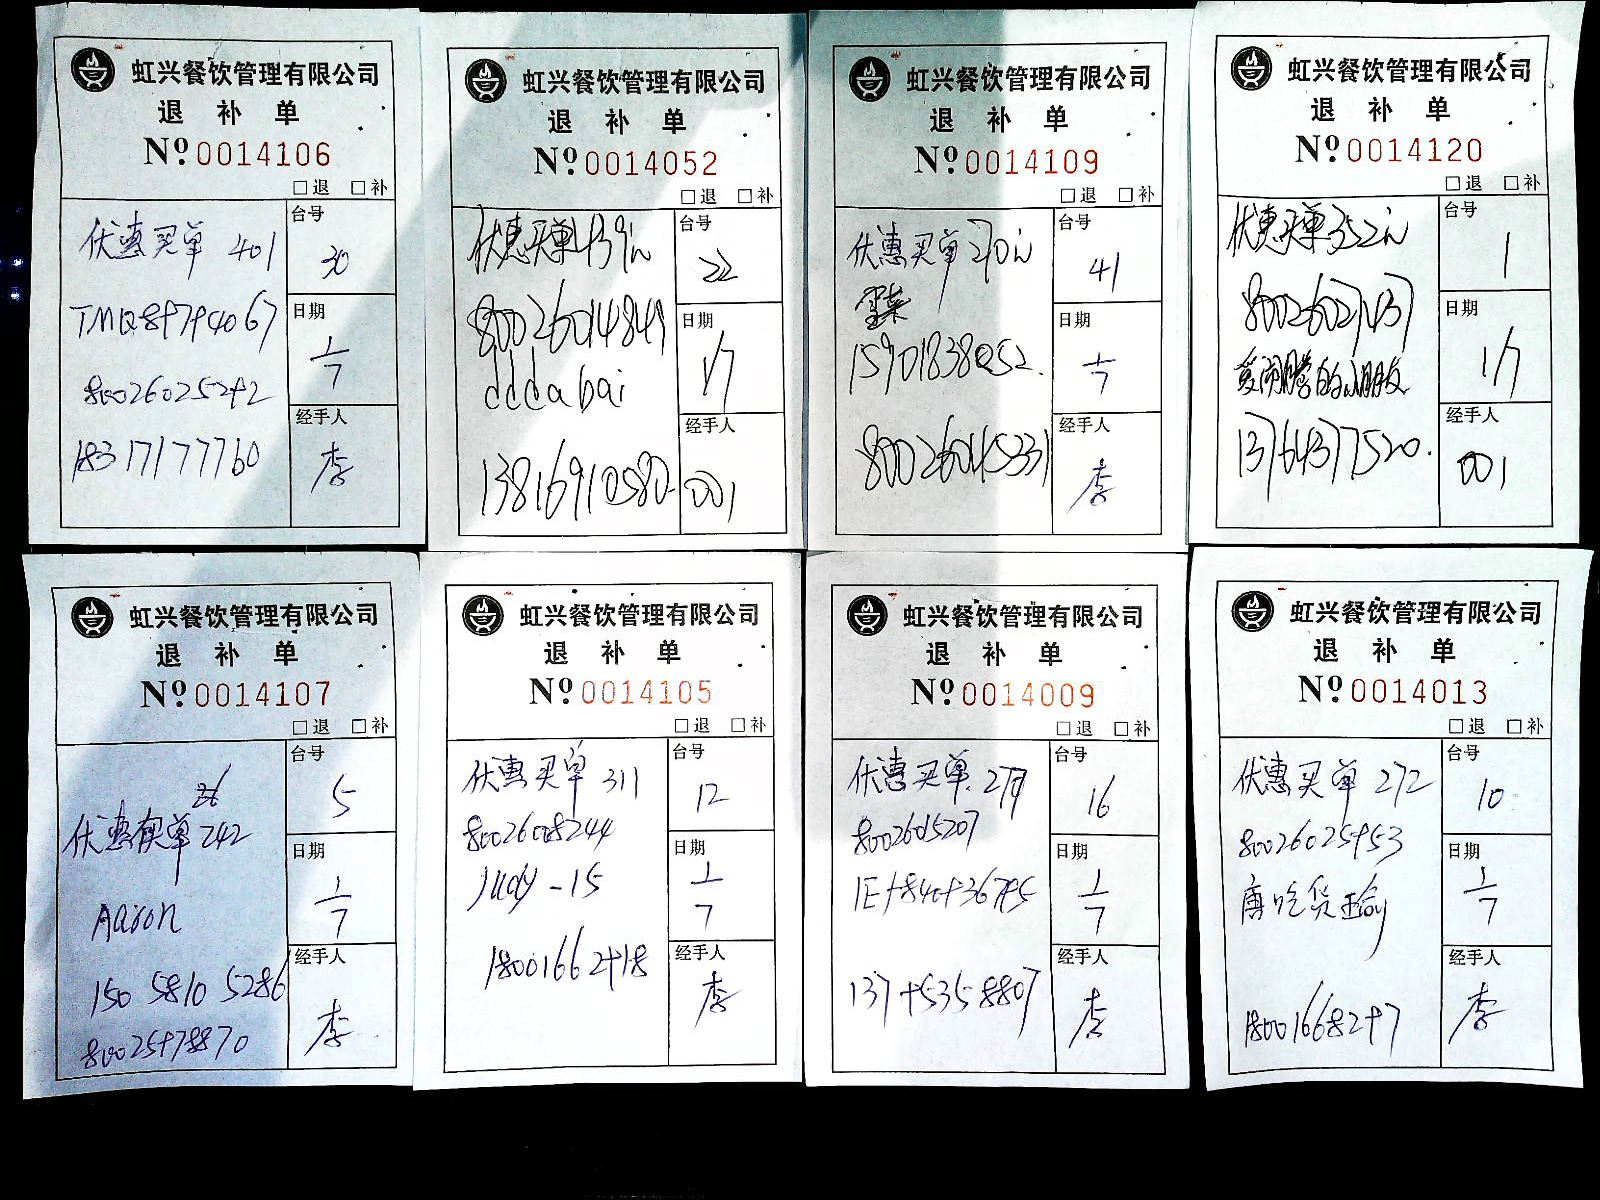 虹兴餐饮管理有限公司
退 补 单
Nº 0014106
□退 □补
优惠买单 401
台号
30
日期
1/7
18317177760
经手人
李
虹兴餐饮管理有限公司
退 补 单
Nº 0014052
□退 □补
优惠买单439元
台号
22
80026014849
dddabai
日期
1/7
13816910580
经手人
001
虹兴餐饮管理有限公司
退 补 单
Nº 0014109
□退 □补
优惠买单270元
台号
41
日期
1/7
15901838252
80026045331
经手人
李
虹兴餐饮管理有限公司
退 补 单
Nº 0014120
□退 □补
优惠买单352元
台号
1
80026027437
爱闹腾的小朋友
日期
1/7
13764377520
经手人
001
虹兴餐饮管理有限公司
退 补 单
Nº 0014107
□退 □补
优惠买单 242
台号
5
Aaron
日期
1/7
150 5810 5286
经手人
李
虹兴餐饮管理有限公司
退 补 单
Nº 0014105
□退 □补
优惠买单 311
台号
12
80026008244
Judy-15
日期
1/7
经手人
李
虹兴餐饮管理有限公司
退 补 单
Nº 0014009
□退 □补
优惠买单
台号
16
80026015207
日期
1/7
经手人
李
虹兴餐饮管理有限公司
退 补 单
Nº 0014013
□退 □补
优惠买单 272
台号
10
唐吃货
日期
1/7
经手人
李